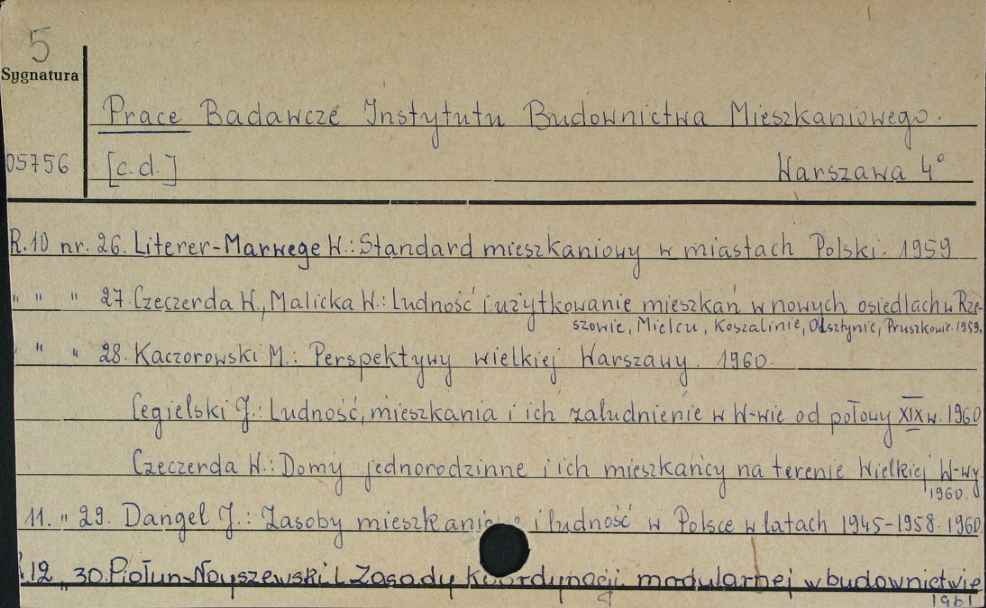 5
Sygnatura
Prace Badawcze Instytutu Budownictwa Mieszkaniowego.
05756 [c.d.] Warszawa 4°
R.10 nr. 26. Literer-Marwege W.: Standard mieszkaniowy w miastach Polski. 1959
" " " 27. Czeczerda W., Malicka W.: Ludność i użytkowanie mieszkań w nowych osiedlach w Rze-
szowie, Mielcu, Koszalinie, Olsztynie, Pruszkowie. 1959.
" " 28. Kaczorowski M.: Perspektywy wielkiej Warszawy. 1960.
Cegielski J.: Ludność, mieszkania i ich zaludnienie w W-wie od połowy XIX w. 1960
Czeczerda W.: Domy jednorodzinne i ich mieszkańcy na terenie Wielkiej W-wy
1960.
11. " 29. Dangel J.: Zasoby mieszkaniowe i ludność w Polsce w latach 1945-1958. 1960
R.12 " 30. Piołun-Noyszewski L. Zasady koordynacji modularnej w budownictwie
1961